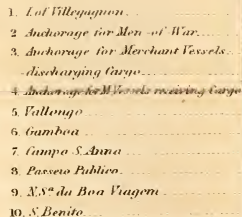 1. I. of Villegagnon
2 Anchorage for Men-of War
3. Anchorage for Merchant Vessels
discharging Cargo
4. Anchorage for M. Vessels receiving Cargo
5. Vallongo
6. Gamboa
7. Campo S. Anna
8. Passeio Publico
9. N.Sª da Boa Viagem
10. S. Benito